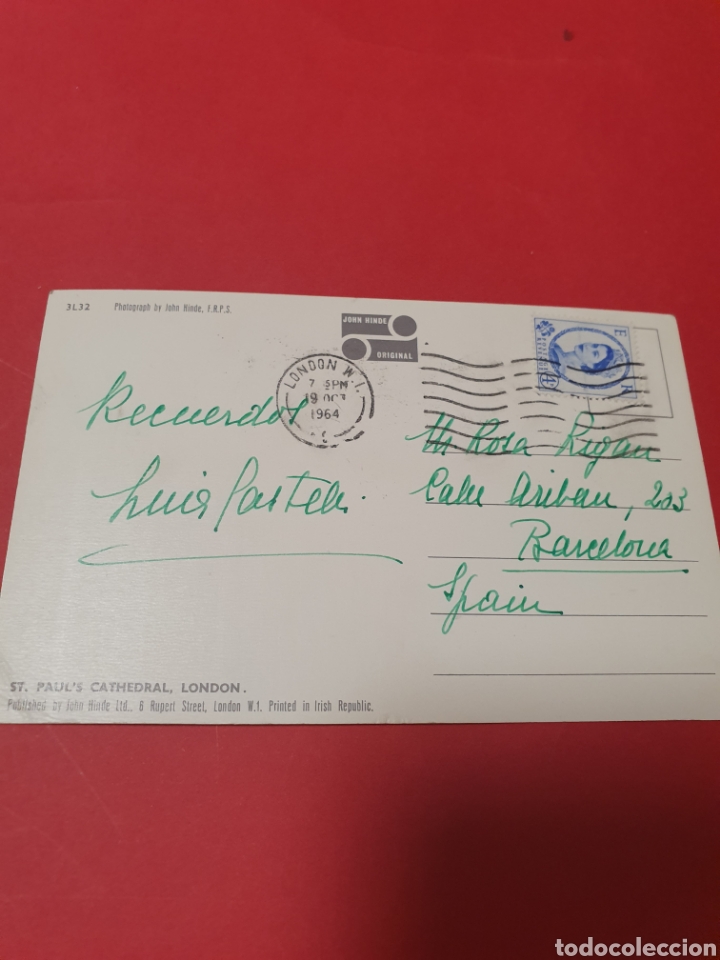 3L32 Photograph by John Hinde, F.R.P.S.
JOHN HINDE
ORIGINAL
LONDON W.1.
7 PM
19 OCT
1964
Recuerdos
Luis
Rosa
203
Barcelona
Spain
ST. PAUL'S CATHEDRAL, LONDON.
Published by John Hinde Ltd., 6 Rupert Street, London W.1. Printed in Irish Republic.
todocoleccion